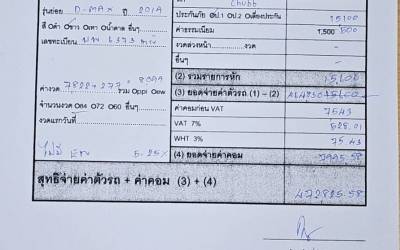 รุ่นย่อย D-MAX ปี 2019
Chubb
ประกันภัย ป.1 ป.2 เคลียงประกัน 15100
สี ดำ ขาว เทา น้ำตาล อื่นๆ
ค่าธรรมเนียม 1,500 500
เลขทะเบียน
งวดล่วงหน้า งวด -
อื่นๆ
(2) รวมรายการหัก 15600
ค่างวด 7822+277 = 8099 รวม ppi ew
(3) ยอดจ่ายค่าตัวรถ (1) - (2)
จำนวนงวด 84 72 60 อื่นๆ
ค่าคอมก่อน VAT 7543
งวดแรกวันที่
VAT 7% 528.01
WHT 3% 75.43
5.25%
(4) ยอดจ่ายค่าคอม 7995.58
สุทธิจ่ายค่าตัวรถ + ค่าคอม (3) + (4) 472825.58